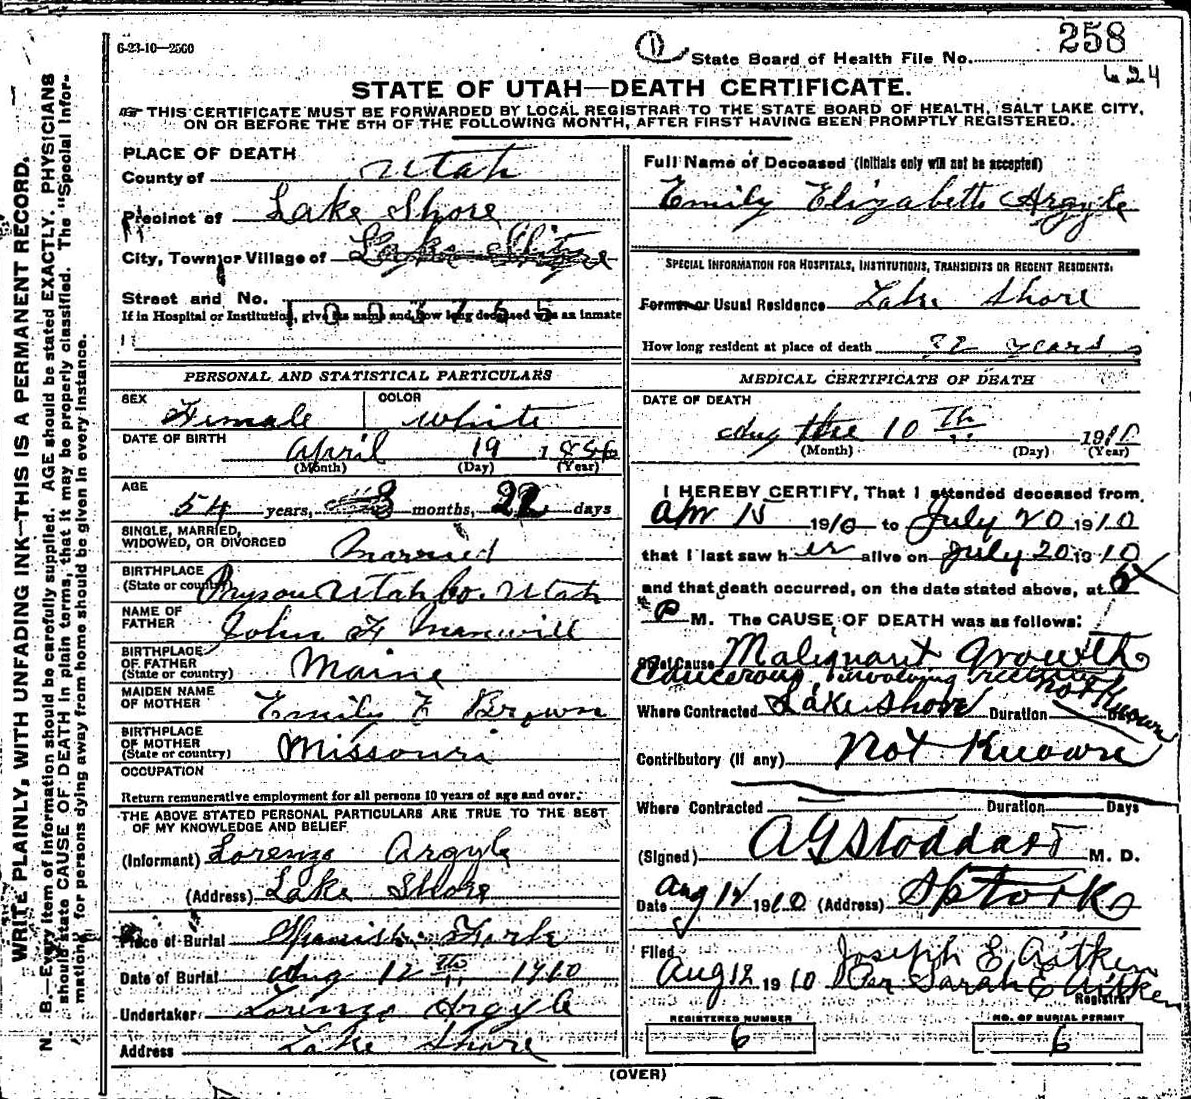 6-23-10—2560
1
258
State Board of Health File No.
624
STATE OF UTAH—DEATH CERTIFICATE.
THIS CERTIFICATE MUST BE FORWARDED BY LOCAL REGISTRAR TO THE STATE BOARD OF HEALTH, SALT LAKE CITY,
ON OR BEFORE THE 5TH OF THE FOLLOWING MONTH, AFTER FIRST HAVING BEEN PROMPTLY REGISTERED.
WRITE PLAINLY, WITH UNFADING INK—THIS IS A PERMANENT RECORD.
N. B.—Every item of information should be carefully supplied. AGE should be stated EXACTLY. PHYSICIANS
should state CAUSE OF DEATH in plain terms, that it may be properly classified. The "Special Infor-
mation" for persons dying away from home should be given in every instance.
PLACE OF DEATH
County of Utah
Precinct of Lake Shore
City, Town or Village of Lake Shore
Street and No.
1003755
If in Hospital or Institution, give its name and how long deceased was an inmate
PERSONAL AND STATISTICAL PARTICULARS
SEX Female
COLOR White
DATE OF BIRTH April 19 1856
(Month) (Day) (Year)
AGE
54 years, 3 months, 22 days
SINGLE, MARRIED,
WIDOWED, OR DIVORCED Married
BIRTHPLACE
(State or country) Payson Utah Co. Utah
NAME OF
FATHER John F Manwill
BIRTHPLACE
OF FATHER
(State or country) Maine
MAIDEN NAME
OF MOTHER Emily E Brown
BIRTHPLACE
OF MOTHER
(State or country) Missouri
OCCUPATION
Return remunerative employment for all persons 10 years of age and over.
THE ABOVE STATED PERSONAL PARTICULARS ARE TRUE TO THE BEST
OF MY KNOWLEDGE AND BELIEF
(Informant) Lorenzo Argyle
(Address) Lake Shore
Place of Burial Spanish Fork
Date of Burial Aug 12th 1910
Undertaker Lorenzo Argyle
Address Lake Shore
Full Name of Deceased (Initials only will not be accepted)
Emily Elizabeth Argyle
SPECIAL INFORMATION FOR HOSPITALS, INSTITUTIONS, TRANSIENTS OR RECENT RESIDENTS.
Former or Usual Residence Lake Shore
How long resident at place of death years
MEDICAL CERTIFICATE OF DEATH
DATE OF DEATH
Aug the 10th 1910
(Month) (Day) (Year)
I HEREBY CERTIFY, That I attended deceased from
Apr 15 1910 to July 20 1910
that I last saw her alive on July 20 1910
and that death occurred, on the date stated above, at 6
P M. The CAUSE OF DEATH was as follows:
Chief Cause Malignant Growth
Cancerous involving rectum
Where Contracted Lake Shore Duration Not Known
Contributory (If any) Not Known
Where Contracted Duration Days
(Signed) A G Stoddard M. D.
Date Aug 12 1910 (Address) Sp Fork
Filed Joseph E Aitken
Aug 12 1910 Per Sarah E Aitken
Registrar
REGISTERED NUMBER
6
NO. OF BURIAL PERMIT
6
(OVER)